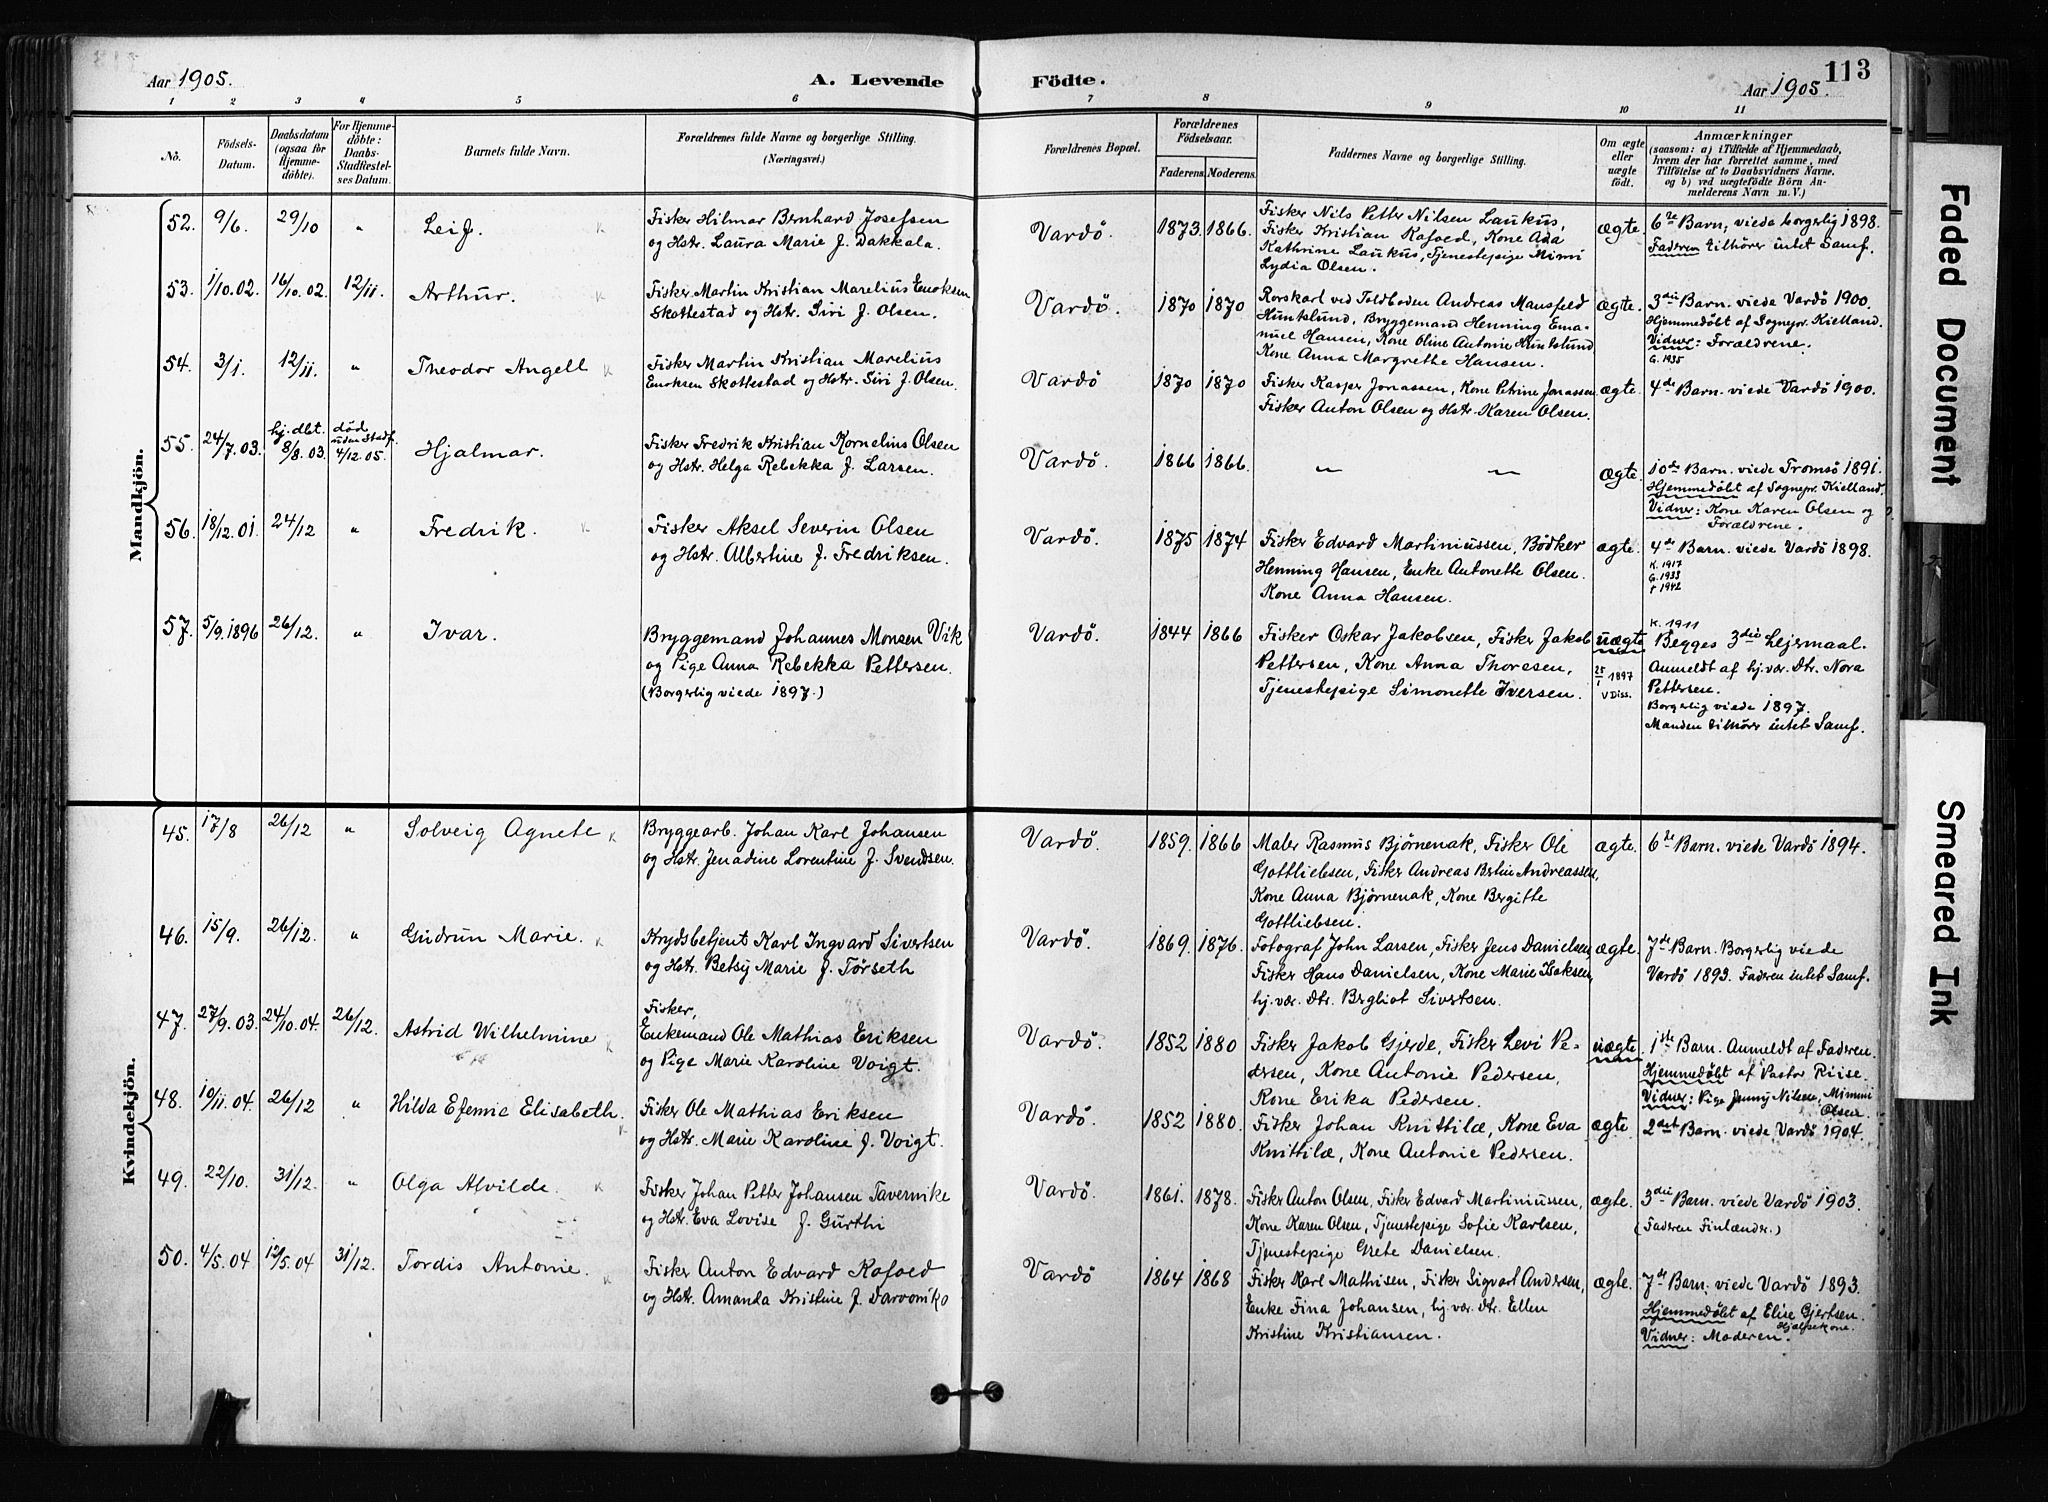 Aar 1905.
A. Levende
Födte.
Aar 1905.
113
1 2 3 4 5 6 7 8 9 10 11
No.
Födsels-
Datum.
Daabsdatum
(ogsaa for
Hjemme-
döbte).
For Hjemme-
döbte:
Daabs-
Stadfæstel-
ses Datum.
Barnets fulde Navn.
Forældrenes fulde Navne og borgerlige Stilling.
(Næringsvei.)
Forældrenes Bopæl.
Forældrenes
Födselsaar.
Faderens. Moderens.
Faddernes Navne og borgerlige Stilling.
Om ægte
eller
uægte
födt.
Anmærkninger
(saasom: a) i Tilfælde af Hjemmedaab,
hvem der har forrettet samme, med
Tilföielse af to Daabsvidners Navne,
og b) ved uægtefödte Börn An-
melderens Navn m. V.)
Mandkjön.
52. 9/6. 29/10 " Leif.
Fisker Hilmar Bernhard Josefsen
og Hstr. Laura Marie f. Dakkala.
Vardö. 1873. 1866.
Fisker Nils Petter Nilsen Laukus,
Fisker Kristian Kofoed, Kone Ada
Kathrine Laukus, Tjenestepige Mimi
Lydia Olsen.
ægte.
6te Barn, viede borgerlig 1898.
Faderen tilhører intet Samf.
53. 1/10.02. 16/10.02. 12/11. Arthur.
Fisker Martin Kristian Marelius Enoksen
Skottestad og Hstr. Siri f. Olsen.
Vardö. 1870 1870
Rorskarl ved Toldboden Andreas Mansfeld
Huntslund, Bryggemand Henning Ema-
nuel Hansen, Kone Oline Antonie Huntslund
Kone Anna Margrethe Hansen.
ægte.
3die Barn. viede Vardö 1900.
Hjemmedøbt af Sognepr. Kielland.
Vidner: Forældrene.
G. 1935
54. 3/1. 12/11. " Theodor Angell
Fisker Martin Kristian Marelius
Enoksen Skottestad og Hstr. Siri f. Olsen.
Vardö 1870 1870
Fisker Kasper Jonassen, Kone Petrine Jonassen
Fisker Anton Olsen og Hstr. Karen Olsen.
ægte.
4de Barn. viede Vardö 1900.
55. 24/7.03. hj.dbt. 8/8.03. død uden Stadf. 4/12.05. Hjalmar.
Fisker Fredrik Kristian Kornelius Olsen
og Hstr. Helga Rebekka f. Larsen.
Vardö. 1866 1866. " "
ægte.
10de Barn. viede Tromsö 1891.
Hjemmedøbt af Sognepr. Kielland.
Vidner: Kone Karen Olsen og
Forældrene.
56. 18/12.01. 24/12 " Fredrik.
Fisker Aksel Severin Olsen
og Hstr. Albertine f. Fredriksen.
Vardö. 1875 1874
Fisker Edvard Martiniussen, Bødker
Henning Hansen, Enke Antonette Olsen.
Kone Anna Hansen.
ægte.
4de Barn. viede Vardö 1898.
K. 1917
G. 1933
† 1942
57. 5/9.1896 26/12. " Ivar.
Bryggemand Johannes Monsen Vik
og Pige Anna Rebekka Pettersen.
(Borgerlig viede 1897.)
Vardö. 1844 1866
Fisker Oskar Jakobsen, Fisker Jakob
Pettersen, Kone Anna Thoresen,
Tjenestepige Simonette Iversen.
uægte
25/1 1897
v Diss.
K. 1911
Begges 3die Lejermaal.
Anmeldt af hj.vær. Dtr. Nora
Pettersen.
Borgerlig viede 1897.
Manden tilhører intet Samf.
Kvindekjön.
45. 17/8 26/12 " Solveig Agnete
Bryggearb. Johan Karl Johansen
og Hstr. Jenadine Lorentine f. Svendsen.
Vardö. 1859. 1866
Maler Rasmus Bjørnenak, Fisker Ole
Gottliebsen, Fisker Andreas Berlin Andreassen,
Kone Anna Bjørnenak, Kone Bergitte
Gottliebsen.
ægte.
6te Barn. viede Vardö 1894.
46. 15/9. 26/12. " Gudrun Marie.
Krydsbetjent Karl Ingvard Sivertsen
og Hstr. Betsy Marie f. Tørseth
Vardö. 1869. 1876.
Fotograf John Larsen, Fisker Jens Danielsen
Fisker Hans Danielsen, Kone Marie Isaksen,
hj.vær. Dtr. Bergliot Sivertsen.
ægte.
7de Barn. Borgerlig viede
Vardö 1893. Faderen intet Samf.
47. 27/9.03. 24/10.04. 26/12. Astrid Wilhelmine
Fisker,
Enkemand Ole Mathias Eriksen
og Pige Marie Karoline Voigt.
Vardö. 1852 1880
Fisker Jakob Gjerde, Fisker Levi Pe-
dersen, Kone Antonie Pedersen,
Kone Erika Pedersen.
uægte.
1ste Barn. Anmeldt af Faderen.
Hjemmedøbt af Pastor Riise.
Vidner: Pige Jenny Nilsen, Mimmi
Olsen.
48. 10/11.04. 26/12 " Hilda Efemie Elisabeth.
Fisker Ole Mathias Eriksen
og Hstr. Marie Karoline f. Voigt.
Vardö. 1852 1880.
Fisker Johan Knittilæ, Kone Eva
Knittilæ, Kone Antonie Pedersen.
ægte.
2det Barn. viede Vardö 1904.
49. 22/10. 31/12. " Olga Alvilde.
Fisker Johan Petter Johansen Tavernike
og Hstr. Eva Lovise f. Gurthi
Vardö. 1861. 1878.
Fisker Anton Olsen, Fisker Edvard Martiniussen,
Kone Karen Olsen, Tjenestepige Sofie Karlsen,
Tjenestepige Grete Danielsen.
ægte.
3die Barn. viede Vardö 1903.
(Faderen Finlænder.)
50. 4/5.04 12/5.04 31/12. Tordis Antonie.
Fisker Anton Edvard Kofoed
og Hstr. Amanda Kristine f. Darvoniko
Vardö 1864 1868
Fisker Karl Mathisen, Fisker Sigvart Andersen,
Enke Fina Johansen, hj.vær. Dtr. Ellen
Kristine Kristiansen.
ægte.
7de Barn. viede Vardö 1893.
Hjemmedøbt af Elise Gjertsen.
Hjælpekone.
Vidner: Moderen.
Faded Document
Smeared Ink